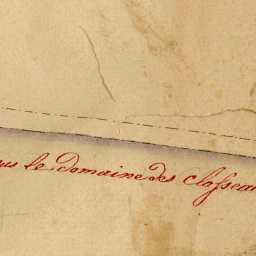 us le Domaine des Classeau